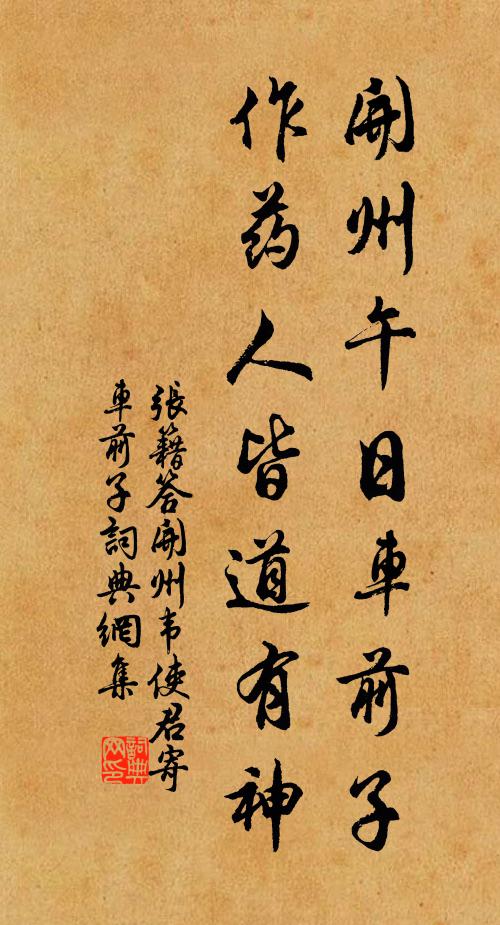 開州午日車前子
作药人皆道有神
張籍答開州韦使君寄
車前子詞典網集
詞典
网印